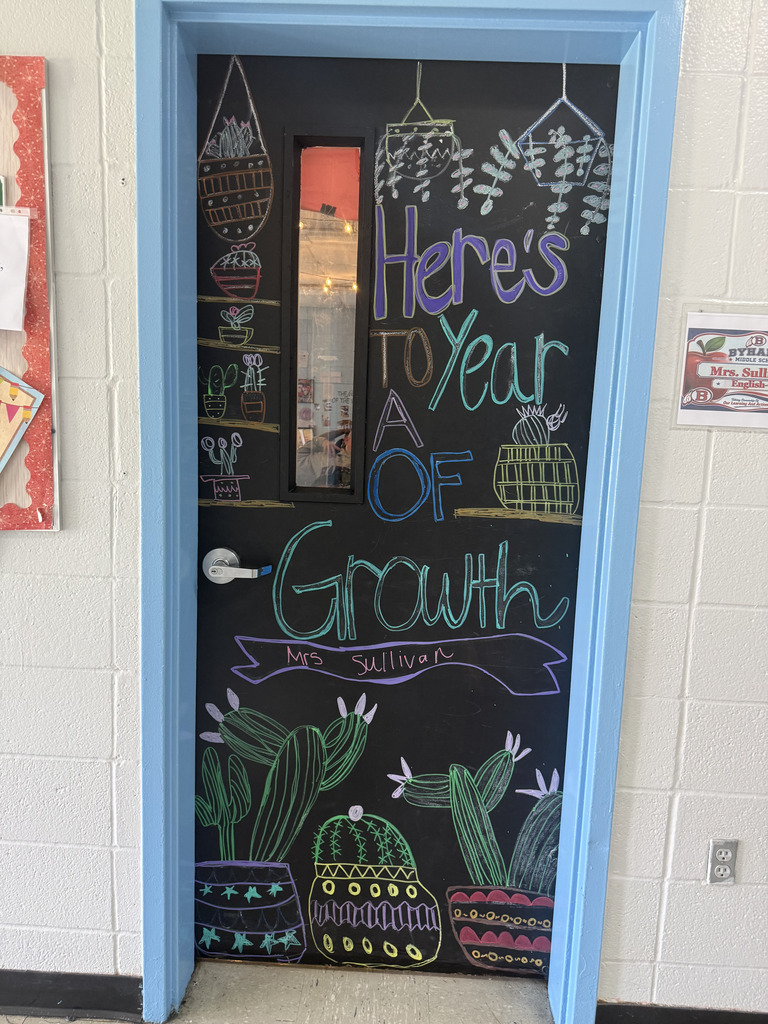 Here's
TO Year
A
OF
Growth
Mrs Sullivan
MIDDLE SC
Mrs. Sull
English-